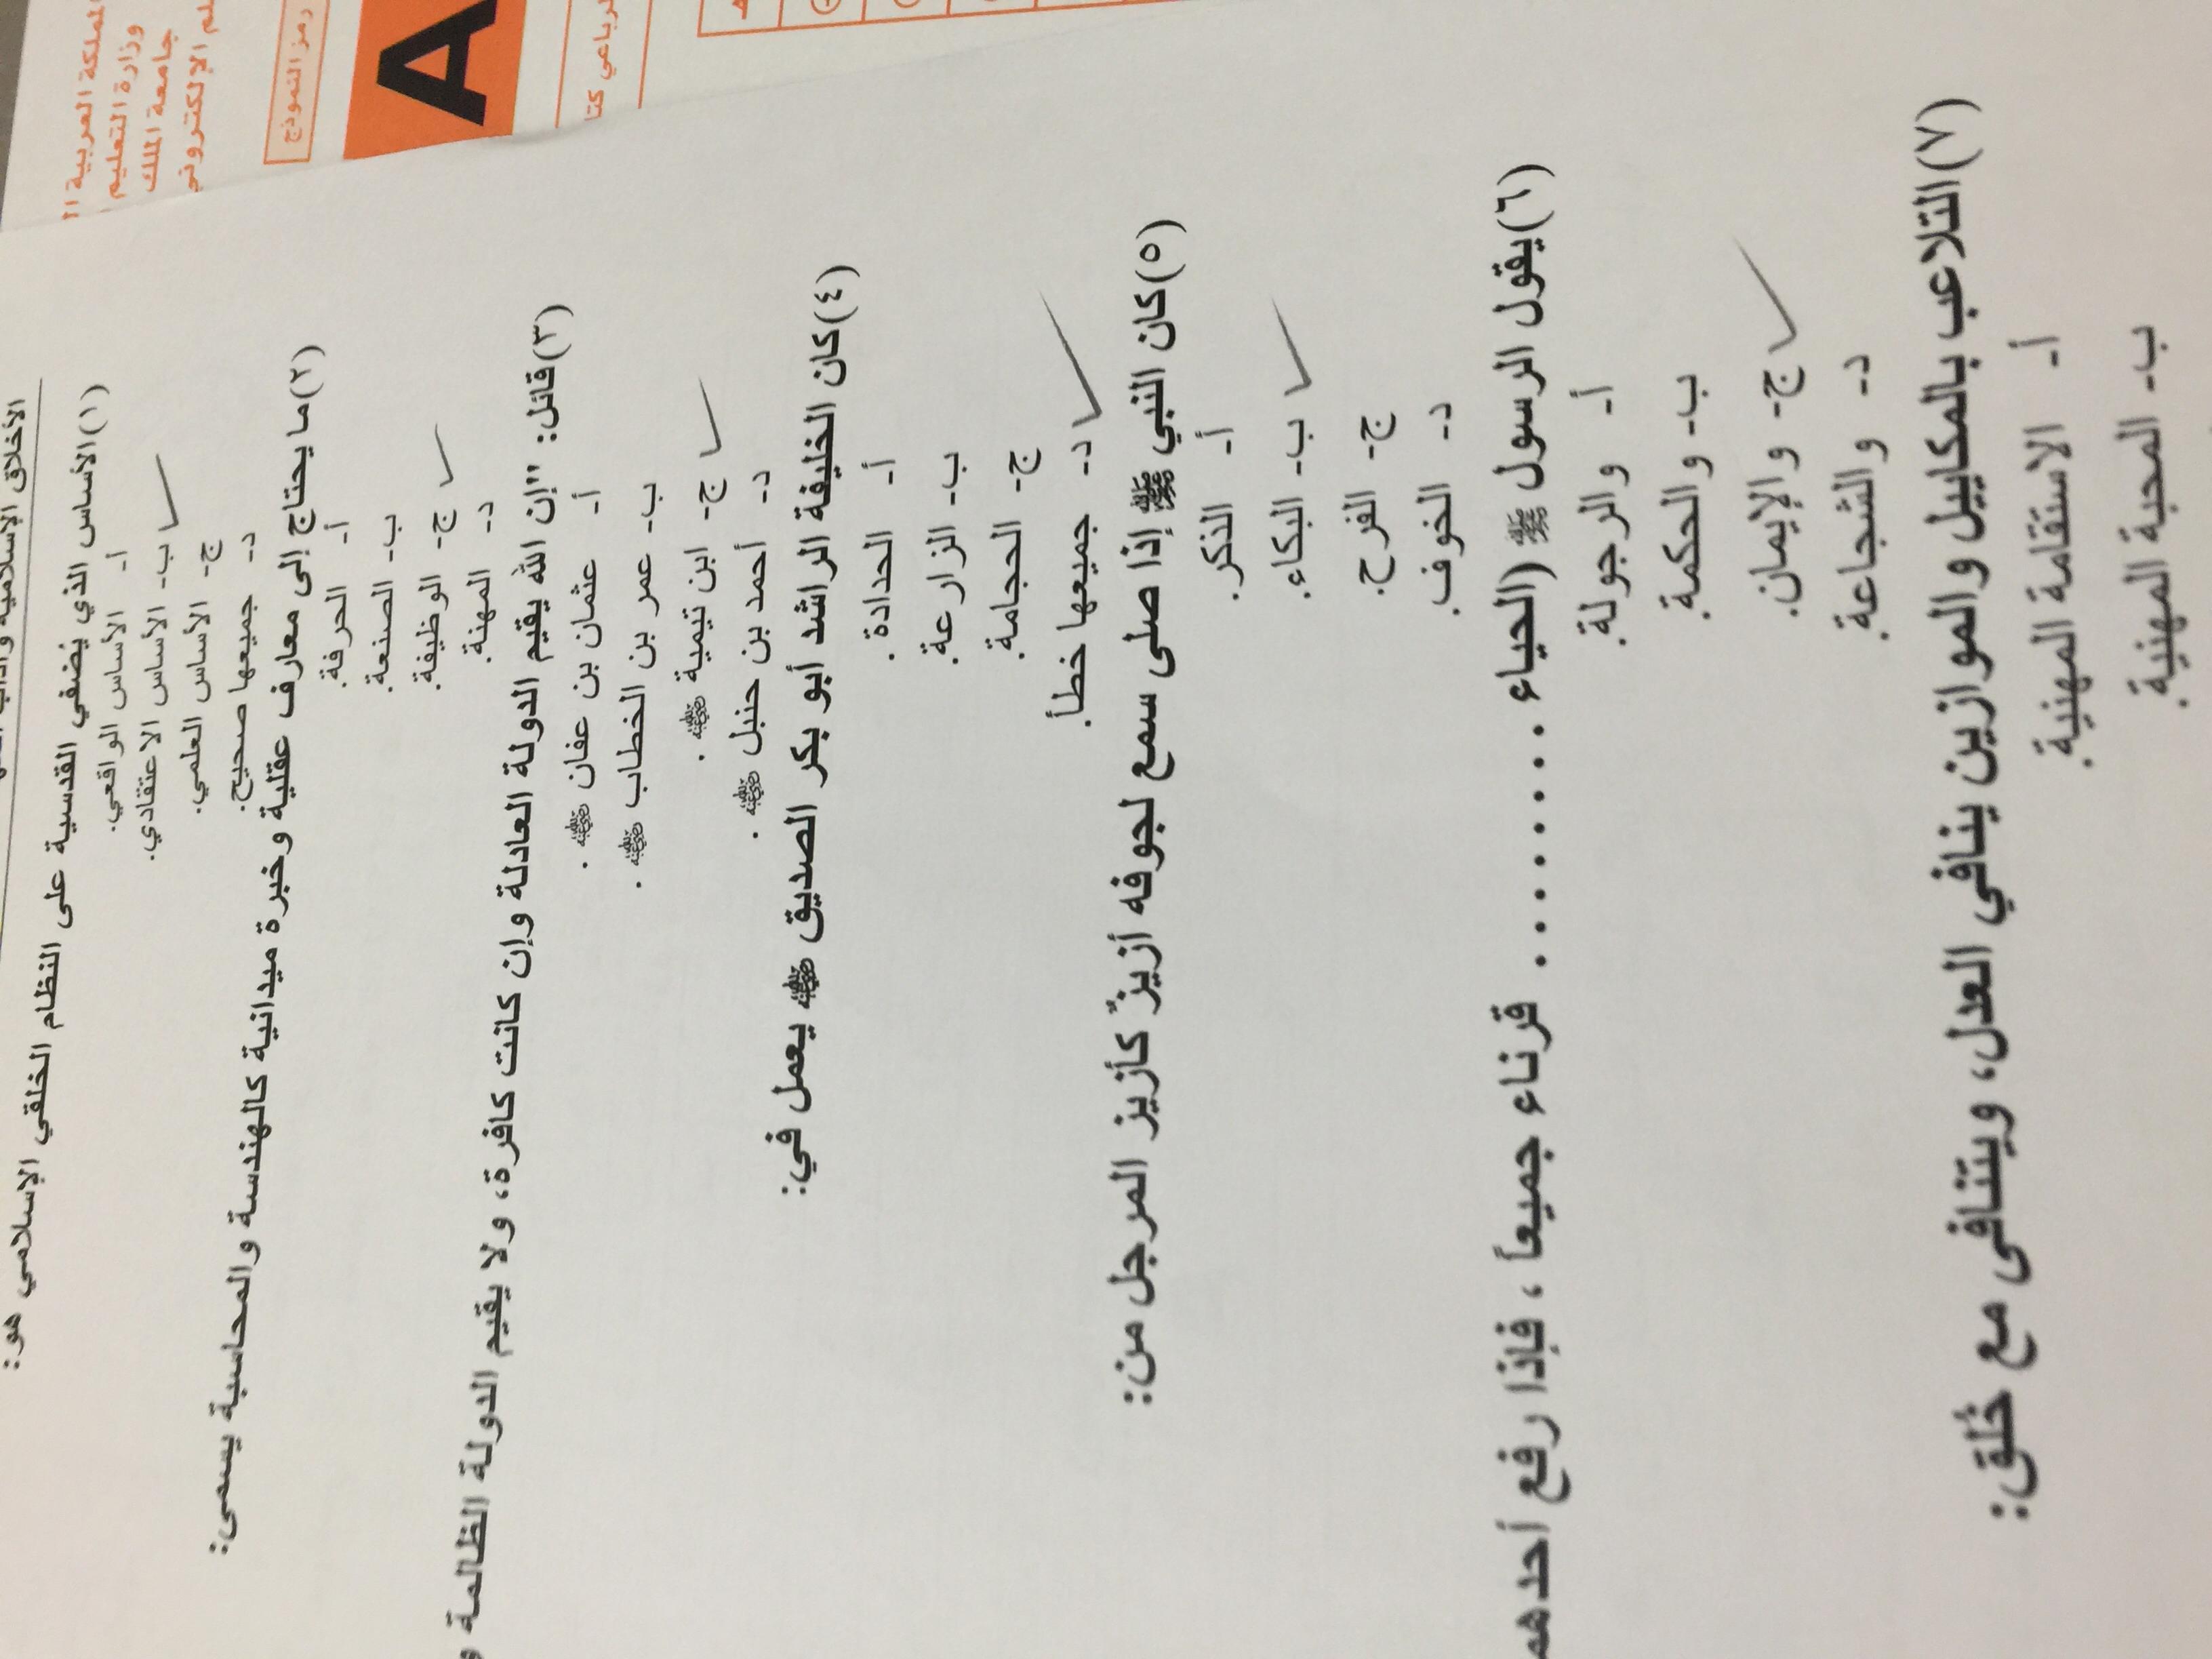 المملكة العربية
وزارة التعليم
جامعة الملك
رمز النموذج
A
الأخلاق الإسلامية وآداب
(١) الأساس الذي يُضفي القدسية على النظام الخلقي الإسلامي هو:
أ- الأساس الواقعي.
ب- الأساس الاعتقادي.
ج- الأساس العلمي.
د- جميعها صحيح.
(٢) ما يحتاج إلى معارف عقلية وخبرة ميدانية كالهندسة والمحاسبة يسمى:
أ- الحرفة.
ب- الصنعة.
ج- الوظيفة.
د- المهنة.
(٣) قائل: "إن الله يقيم الدولة العادلة وإن كانت كافرة، ولا يقيم الدولة الظالمة
أ- عثمان بن عفان ﷺ.
ب- عمر بن الخطاب ﷺ.
ج- ابن تيمية ﷺ.
د- أحمد بن حنبل ﷺ.
(٤) كان الخليفة الراشد أبو بكر الصديق ﷺ يعمل في:
أ- الحدادة.
ب- الزارعة.
ج- الحجامة.
د- جميعها خطأ.
(٥) كان النبي ﷺ إذا صلى سمع لجوفه أزيزٌ كأزيز المرجل من:
أ- الذكر.
ب- البكاء.
ج- الفرح.
د- الخوف.
(٦) يقول الرسول ﷺ (الحياء .......... قرناء جميعاً، فإذا رفع أحدهم
أ- والرجولة.
ب- والحكمة.
ج- والإيمان.
د- والشجاعة.
(٧) التلاعب بالمكاييل والموازين ينافي العدل، ويتنافى مع خُلق:
أ- الاستقامة المهنية.
ب- المحبة المهنية.